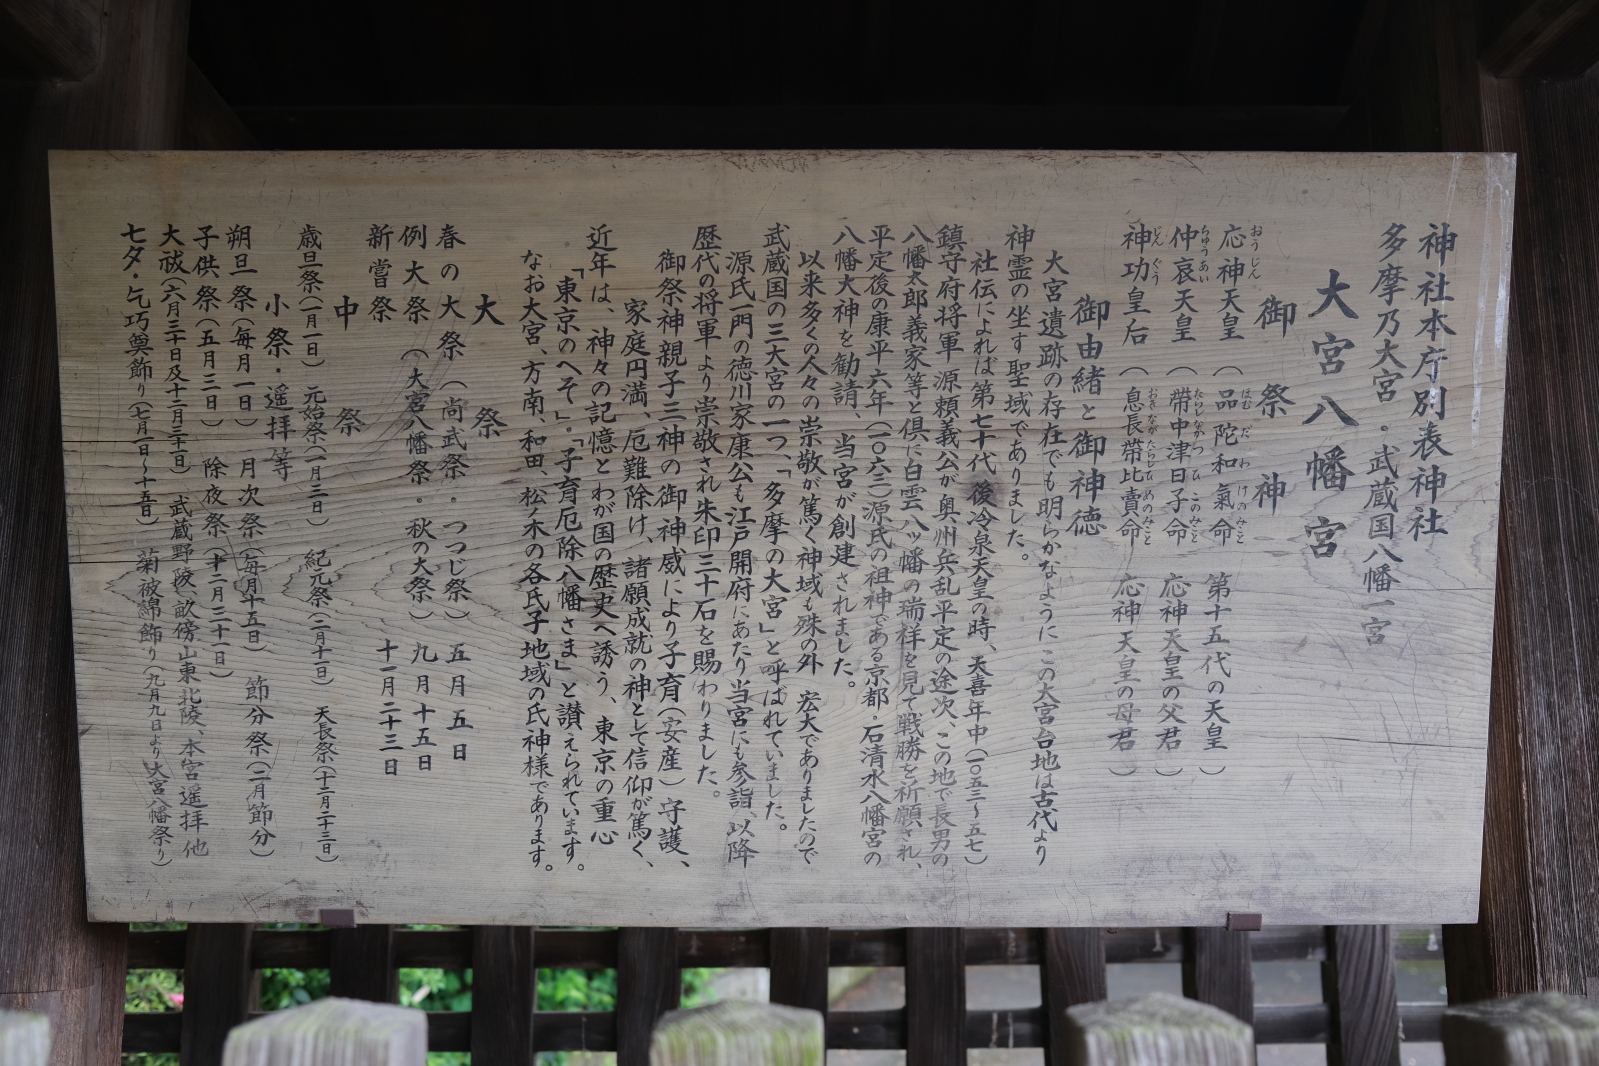 神社本庁別表神社
多摩乃大宮・武蔵国八幡一宮
大宮八幡宮
御祭神
応神天皇（品陀和氣命　第十五代の天皇）
おうじん　ほむだわけのみこと
仲哀天皇（帶中津日子命　応神天皇の父君）
ちゅうあい　たらしなかつひこのみこと
神功皇后（息長帶比賣命　応神天皇の母君）
じんぐう　おきながたらしひめのみこと
御由緒と御神徳
大宮遺跡の存在でも明らかなようにこの大宮台地は古代より
神霊の坐す聖域でありました。
社伝によれば第七十代後冷泉天皇の時、天喜年中（一〇五三〜五七）
鎮守府将軍源頼義公が奥州兵乱平定の途次、この地で長男の
八幡太郎義家等と倶に白雲八ッ幡の瑞祥を見て戦勝を祈願され、
平定後の康平六年（一〇六三）源氏の祖神である京都・石清水八幡宮の
八幡大神を勧請、当宮が創建されました。
以来多くの人々の崇敬が篤く神域も殊の外 宏大でありましたので
武蔵国の三大宮の一つ、「多摩の大宮」と呼ばれていました。
源氏一門の徳川家康公も江戸開府にあたり当宮にも参詣、以降
歴代の将軍より崇敬され朱印三十石を賜わりました。
御祭神親子三神の御神威により子育（安産）守護、
家庭円満、厄難除け、諸願成就の神として信仰が篤く、
近年は、神々の記憶とわが国の歴史へ誘う、東京の重心
「東京のへそ」・「子育厄除八幡さま」と讃えられています。
なお大宮、方南、和田、松ノ木の各氏子地域の氏神様であります。
大祭
春の大祭（尚武祭・つつじ祭）五月五日
例大祭（大宮八幡祭・秋の大祭）九月十五日
新嘗祭　十一月二十三日
中祭
歳旦祭（一月一日）　元始祭（一月三日）　紀元祭（二月十一日）　天長祭（十二月二十三日）
小祭・遥拝等
朔旦祭（毎月一日）　月次祭（毎月十五日）　節分祭（二月節分）
子供祭（五月三日）　除夜祭（十二月三十一日）
大祓（六月三十日及十二月三十一日）　武蔵野陵、畝傍山東北陵、本宮遥拝他
七夕・乞巧奠飾り（七月一日〜十五日）　菊被綿飾り（九月九日より大宮八幡祭り）